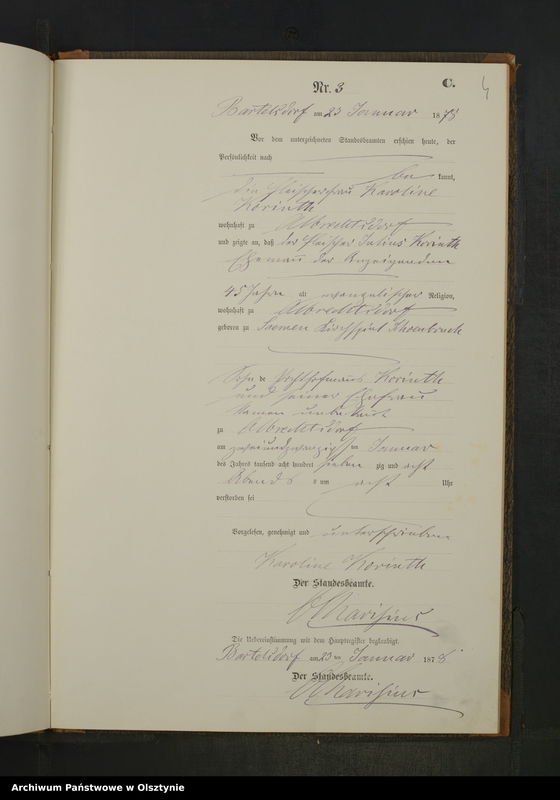 C.
4
Nr. 3
Bartelsdorf am 23 Januar 1878
Vor dem unterzeichneten Standesbeamten erschien heute, der
Persönlichkeit nach
bekannt,
die Fleischerfrau Karoline
Korinth
wohnhaft zu Albrechtsdorf
und zeigte an, daß der Fleischer Julius Korinth
Ehemann der Anzeigenden
45 Jahre alt evangelischer Religion,
wohnhaft zu Albrechtsdorf
geboren zu Kirchspiel
Sohn des Korinth
und seiner Ehefrau
Namen unbekannt
zu Albrechtsdorf
am zweiundzwanzigsten Januar
des Jahres tausend acht hundert siebenzig und acht
Abends um acht Uhr
verstorben sei
Vorgelesen, genehmigt und unterschrieben
Karoline Korinth
Der Standesbeamte.
Die Uebereinstimmung mit dem Hauptregister beglaubigt.
Bartelsdorf am 23 ten Januar 1878
Der Standesbeamte.
Archiwum Państwowe w Olsztynie